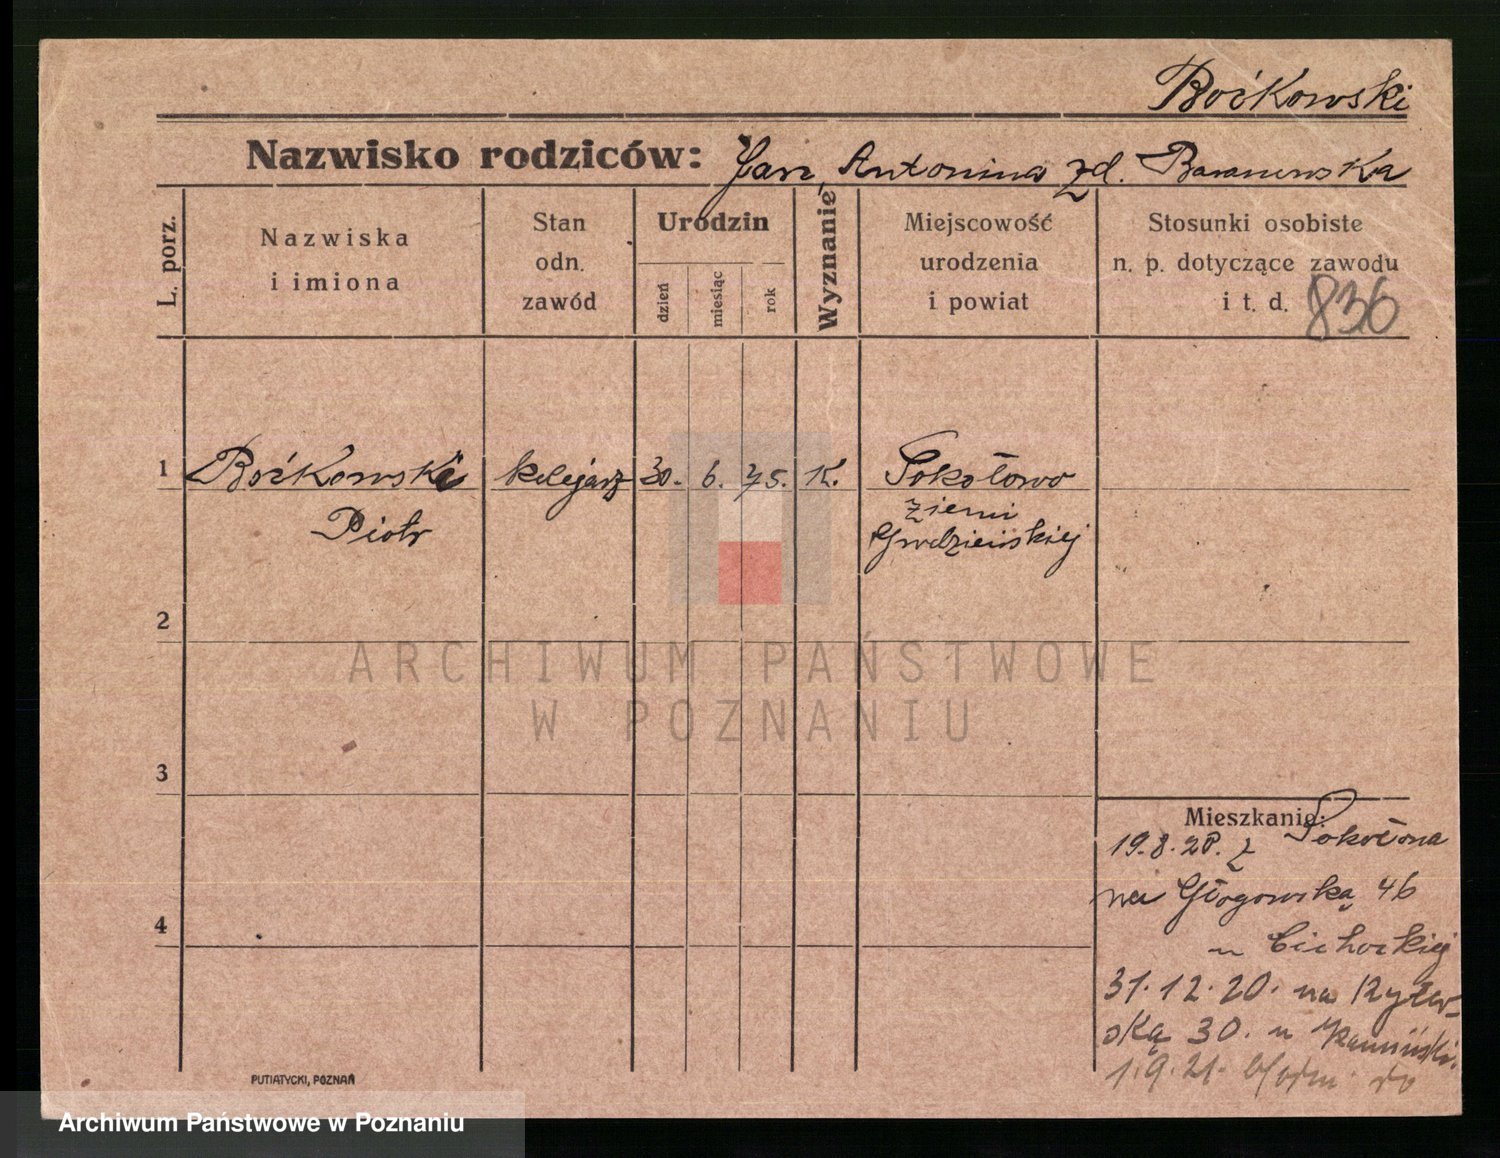 Boćkowski
Nazwisko rodziców: Jan, Antonina zd. Baranowska
L. porz.
Nazwiska
i imiona
Stan
odn.
zawód
Urodzin
dzień
miesiąc
rok
Wyznanie
Miejscowość
urodzenia
i powiat
Stosunki osobiste
n. p. dotyczące zawodu
i t. d. 836
1 Boćkowski kolejarz 30. 6. 75. K. Sokołowo
Piotr
ziemi
Grodzieńskiej
2
3
4
Mieszkanie:
19.8.20. z Sokołowa
na Głogowską 46
u Cichockiej
31.12.20. na
30. u
1.9.21. do
PUTIATYCKI, POZNAŃ
ARCHIWUM PAŃSTWOWE
W POZNANIU
Archiwum Państwowe w Poznaniu